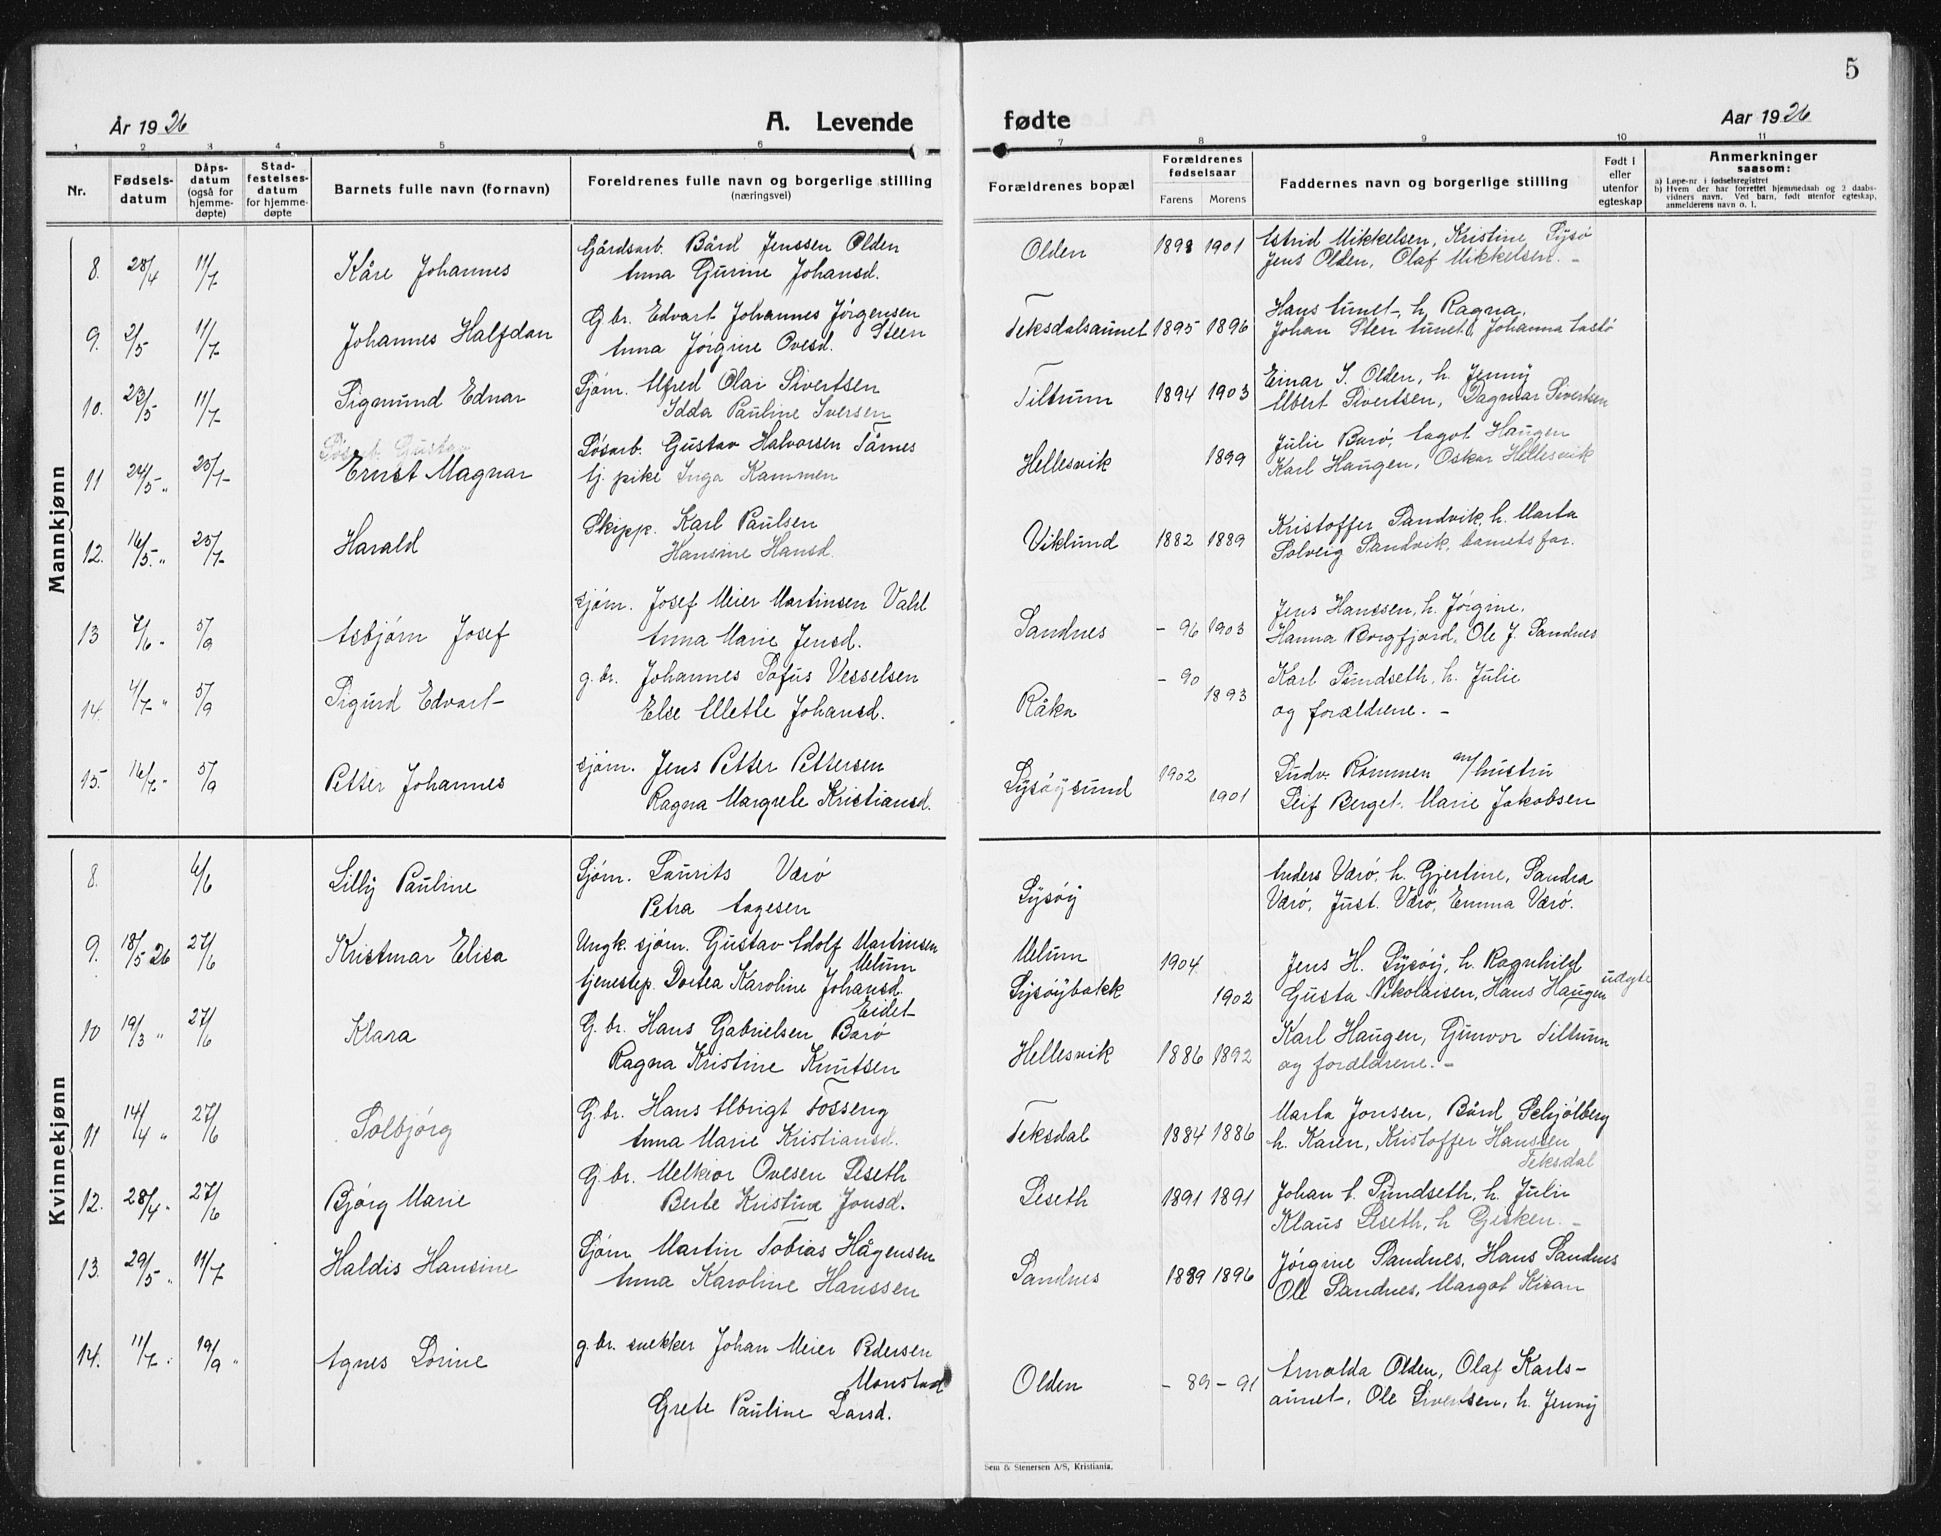 5
År 1926 A. Levende
fødte Aar 1926
1 2 3 4 5 6 7 8 9 10 11
Nr. Fødsels-datum Dåps-datum (også for hjemme-døpte) Stad-festelses-datum for hjemme-døpte Barnets fulle navn (fornavn) Foreldrenes fulle navn og borgerlige stilling (næringsvei)
Forældrenes bopæl Forældrenes fødselsaar Farens Morens Faddernes navn og borgerlige stilling Født i eller utenfor egteskap Anmerkninger saasom:
a) Løpe-nr. i fødselsregistret
b) Hvem der har forrettet hjemmedaab og 2 daabs-vidners navn. Ved barn, født utenfor egteskap, anmelderens navn o. l.
Mannkjønn
8. 28/4 11/7 Kåre Johannes Gårdsarb. Bård Jenssen Olden
Anna Gurine Johansd.
Olden 1898 1901 Astrid Mikkelsen, Kristine Lysø
Jens Olden, Olaf Mikkelsen. -
9. 2/5 11/7 Johannes Halfdan G. br. Edvart Johannes Jørgensen Steen
Anna Jørgine Ovesd.
Teksdalsaunet 1895 1896 Hans Aunet, h. Ragna,
Johan Sten Aunet, Johanna
10. 23/5 11/7 Sigmund Ednar Sjøm. Alfred Olai Sivertsen
Idda Pauline Iversen
Tiltrum 1894 1903 Einar S. Olden, h. Jenny
Albert Sivertsen, Dagmar Sivertsen
11 24/5 " 25/7 Ernst Magnar Løsarb. Gustav Halvorsen Tårnes
tj. pike Inga Kammen
Løsarb. Gustav
Hellesvik 1899 Julie Barø, Aagot Haugen
Karl Haugen, Oskar Hellesvik
12. 16/5 " 25/7 Harald Skipp. Karl Paulsen
Hansine Hansd.
Viklund 1882 1889 Kristoffer Sandvik, h. Marta
Solveig Sandvik, barnets far.
13 7/6 - 5/9 Asbjørn Josef sjøm. Josef Meier Martinsen Vahl
Anna Marie Jensd.
Sandnes - 96 1903 Jens Hanssen, h. Jørgine,
Hanna Borgfjord, Ole J. Sandnes
14. 4/7 " 5/9 Sigurd Edvart g. br. Johannes Pofus Vesselsen
Else Mette Johansd.
Råka - 90 1893 Karl Sundseth, h. Julie
og forældrene. -
15. 16/7 " 5/9 Petter Johannes sjøm. Jens Petter Pettersen
Ragna Margrete Kristiansd.
Lysøysund 1902 1901 Ludv. Rømmen m/hustru
Leif Berget. Marie Jakobsen
Kvinnekjønn
8. 6/6 Lilly Pauline Sjøm. Laurits Værø
Petra Aagesen
Lysøy Anders Værø, h. Gjertine, Sandra
Værø, Just. Værø, Emma Værø.
9. 18/5 26 27/6 Kristmar Elisa Ungk. sjøm. Gustav Adolf Martinsen Melum
tjenestep. Dortea Karoline Johansd. Eidet
Melum
Lysøybakk 1904 1902 Jens H. Lysøy, h. Ragnhild
Gusta Nikolaisen, Hans Haugen udgte
10 19/3 " 27/6 Klara G. br. Hans Gabrielsen Barø
Ragna Kristine Knutsen
Hellesvik 1886 1892 Karl Haugen, Gunvor Tiltrum
og forældrene. -
11 14/4 " 27/6 Solbjørg G. br. Hans Albrigt Fosseng
Anna Marie Kristiansd.
Teksdal 1884 1886 Marta Jonsen, Bård Schjølberg
h. Karen, Kristoffer Hanssen Teksdal
12. 28/4 " 27/6 Bjørg Marie G. br. Melkior Ovesen Leseth
Berte Kristine Jonsd.
Leseth 1891 1891 Johan A. Sundseth, h. Julie
Klaus Leseth, h Gjesken. -
13. 29/5 " 11/7 Haldis Hansine Sjøm Martin Tobias Hågensen
Anna Karoline Hanssen
Sandnes 1889 1896 Jørgine Sandnes, Hans Sandnes
Ole Sandnes, Margot Kisan
14. 11/7 " 19/9 " Agnes Lorine g. br. snekker Johan Meier Pedersen Monstad
Grete Pauline Larsd.
Olden - 89 - 91 Arnolda Olden, Olaf Karls-
aunet, Ole Sivertsen, h. Jenny
Sem & Stenersen A/S, Kristiania.